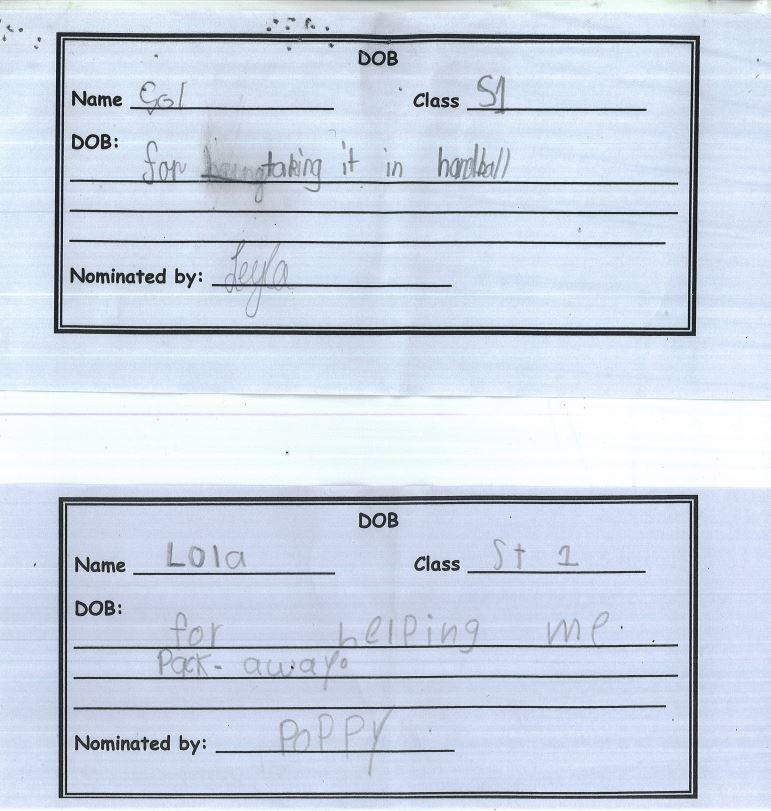 DOB
Name Class S1
DOB:
for taking it in handball
Nominated by: Leyla
DOB
Name Lola Class St 1
DOB:
for helping me
Pack- away.
Nominated by: POPPY